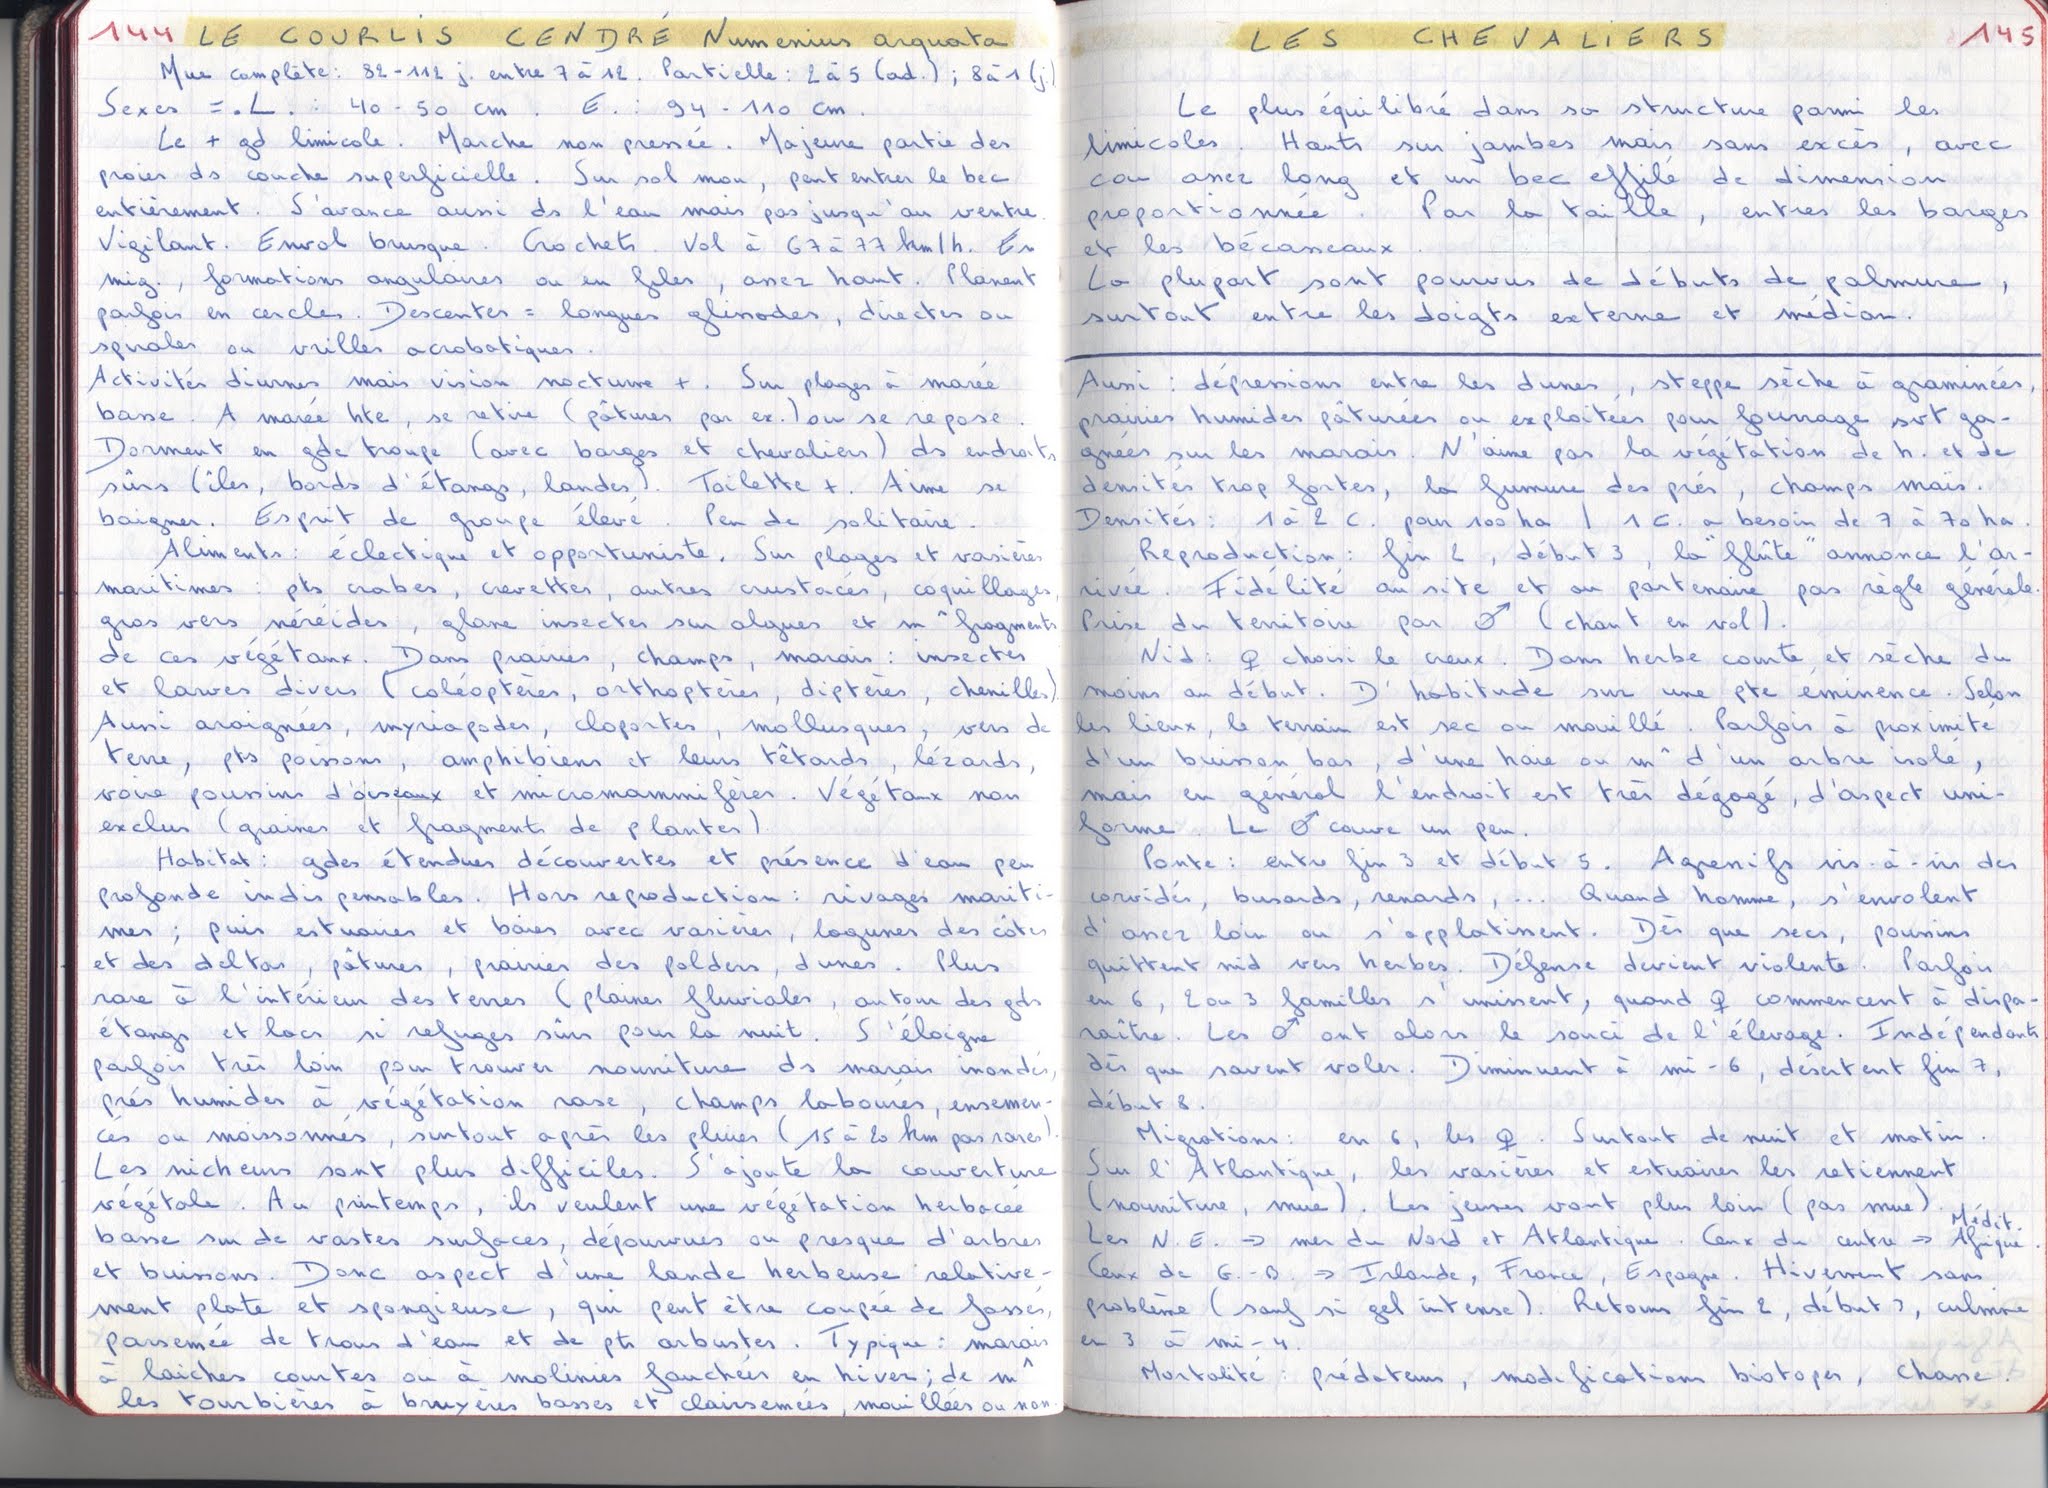 144 LE COURLIS CENDRÉ Numenius arquata
Mue complète : 82-112 j. entre 7 à 12. Partielle : 2 à 5 (ad.) ; 8 à 1 (j.)
Sexes = . L. : 40 - 50 cm . E. : 94 - 110 cm.
Le + gd limicole. Marche non pressée. Majeure partie des
proies ds couche superficielle. Sur sol mou, peut entrer le bec
entièrement. S'avance aussi ds l'eau mais pas jusqu'au ventre.
Vigilant. Envol brusque. Crochets. Vol à 67 à 77 km/h. En
mig., formations angulaires ou en files, assez haut. Planent
parfois en cercles. Descentes = longues glissades, directes ou
spirales ou vrilles acrobatiques.
Activités diurnes mais vision nocturne +. Sur plages à marée
basse. A marée hte, se retire (pâtures par ex.) ou se repose.
Dorment en gde troupe (avec barges et chevaliers) ds endroits
sûrs (îles, bords d'étangs, landes). Toilette +. Aime se
baigner. Esprit de groupe élevé. Peu de solitaire.
Aliments : éclectique et opportuniste. Sur plages et vasières
maritimes : pts crabes, crevettes, autres crustacés, coquillages,
gros vers néréides, glane insectes sur algues et m^ fragments
de ces végétaux. Dans prairies, champs, marais : insectes
et larves divers (coléoptères, orthoptères, diptères, chenilles).
Aussi araignées, myriapodes, cloportes, mollusques, vers de
terre, pts poissons, amphibiens et leurs têtards, lézards,
voire poussins d'oiseaux et micromammifères. Végétaux non
exclus (graines et fragments de plantes).
Habitat : gdes étendues découvertes et présence d'eau peu
profonde indispensables. Hors reproduction : rivages mariti-
mes ; puis estuaires et baies avec vasières, lagunes des côtes
et des deltas, pâtures, prairies des polders, dunes. Plus
rare à l'intérieur des terres (plaines fluviales, autour des gds
étangs et lacs si refuges sûrs pour la nuit. S'éloigne
parfois très loin pour trouver nourriture ds marais inondés,
prés humides à végétation rase, champs labourés, ensemen-
cés ou moissonnés, surtout après les pluies (15 à 20 km pas rares).
Les nicheurs sont plus difficiles. S'ajoute la couverture
végétale. Au printemps, ils veulent une végétation herbacée
basse sur de vastes surfaces, dépourvues ou presque d'arbres
et buissons. Donc aspect d'une lande herbeuse relative-
ment plate et spongieuse, qui peut être coupée de fossés,
parsemée de trous d'eau et de pts arbustes. Typique : marais
à laiches courtes ou à molinies fauchées en hiver ; de m^
les tourbières à bruyères basses et clairsemées, mouillées ou non.
LES CHEVALIERS 145
Le plus équilibré dans sa structure parmi les
limicoles. Hauts sur jambes mais sans excès, avec
cou assez long et un bec effilé de dimension
proportionnée. Par la taille, entres les barges
et les bécasseaux.
La plupart sont pourvus de débuts de palmure,
surtout entre les doigts externe et médian.
Aussi : dépressions entre les dunes, steppe sèche à graminées,
prairies humides pâturées ou exploitées pour fourrage svt ga-
gnées sur les marais. N'aime pas la végétation de h. et de
densités trop fortes, la fumure des prés, champs maïs.
Densités : 1 à 2 c. pour 100 ha / 1 c. a besoin de 7 à 70 ha.
Reproduction : fin 2, début 3, la "flûte" annonce l'ar-
rivée. Fidélité au site et au partenaire pas règle générale.
Prise du territoire par ♂ (chant en vol).
Nid : ♀ choisi le creux. Dans herbe courte et sèche du
moins au début. D'habitude sur une pte éminence. Selon
les lieux, le terrain est sec ou mouillé. Parfois à proximité
d'un buisson bas, d'une haie ou m^ d'un arbre isolé,
mais en général l'endroit est très dégagé, d'aspect uni-
forme. Le ♂ couve un peu.
Ponte : entre fin 3 et début 5. Agressifs vis-à-vis des
corvidés, busards, renards, ... Quand homme, s'envolent
d'assez loin ou s'applatissent. Dès que secs, poussins
quittent nid vers herbes. Défense devient violente. Parfois
en 6, 2 ou 3 familles s'unissent, quand ♀ commencent à dispa-
raître. Les ♂ ont alors le souci de l'élevage. Indépendants
dès que savent voler. Diminuent à mi-6, désertent fin 7,
début 8.
Migrations : en 6, les ♀. Surtout de nuit et matin.
Sur l'Atlantique, les vasières et estuaires les retiennent
(nourriture, mue). Les jeunes vont plus loin (pas mue).
Les N.E. → mer du Nord et Atlantique. Ceux du centre → Médit. Afrique.
Ceux de G.-B. → Irlande, France, Espagne. Hivernent sans
problème (sauf si gel intense). Retours fin 2, début 3, culmine
en 3 à mi-4.
Mortalité : prédateurs, modifications biotopes, chasse.